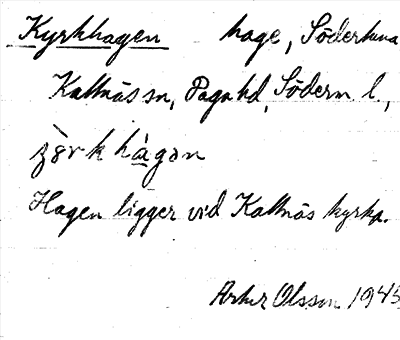 Kyrkhagen hage, Södertuna
Kattnäs sn, Daga hd, Söderm l.,
Hagen ligger vid Kattnäs kyrka.
Artur Olsson 1945